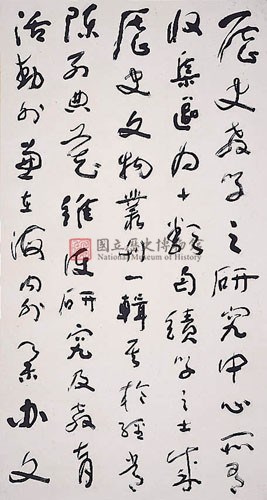 歷史教學之研究中心所有
收集區為十類績學之士
歷史文物叢刊一輯其於經常
陳列典藏維護研究及教育
活動外並在海內外舉辦文
國立歷史博物館
National Museum of History